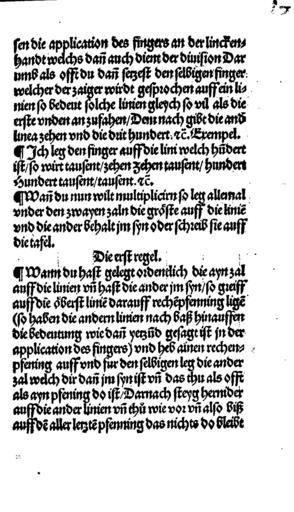 sen die application des fingers an der lincken-
handt welchs dañ auch dient der diuision Dar
umb als offt du dañ setzest den selbigen finger
welcher der zaiger wirdt gesprochen auff ein li-
nien so bedeut solche linien gleych so vil als die
erste vnden an zufahen/Dem nach gibt die and
linea zehen vnd die drit hundert. ⁊c̃. Exempel.
¶ Ich leg den finger auff die lini welch hũdert
ist/so wirt tausent/zehen zehen tausent/ hundert
Hundert tausent/tausent. ⁊c̃.
¶ Wañ du nun wilt multiplicirn so leg allemal
vnder den zwayen zaln die gröste auff die liniẽ
vnd die ander behalt jm syn oder schreib sie auff
die tafel.
Die erst regel.
¶ Wann du hast gelegt ordenlich die ayn zal
auff die linien vñ hast die ander jm syn/so greiff
auff die öberst liniẽ darauff rechẽpfenning ligẽ
(so haben die andern linien nach baß hinauffen
die bedeutung wie dañ yetzũd gesagt ist in der
application des fingers) vnd heb ainen rechen-
pfening auff vnd fur den selbigen leg die ander
zal welch dir dañ jm syn ist vñ das thu als offt
als ayn pfening do ist/Darnach steyg hernider
auff die ander linien vñ thů wie vor vñ also biß
auff dẽ aller letztẽ pfenning das nichts do bleibt